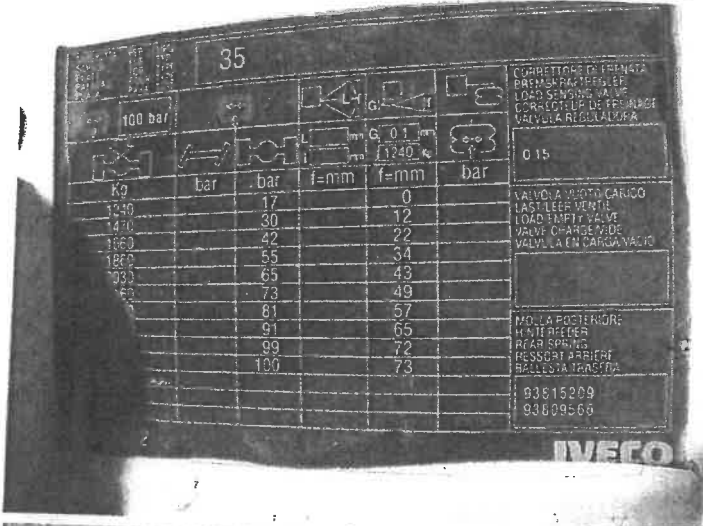 35
100 bar
L mm
mm
G 0.1 mm
1240 Kg
Kg bar bar f=mm f=mm bar
1240 17 0
1470 30 12
1660 42 22
1860 55 34
65 43
73 49
81 57
91 65
99 72
100 73
CORRETTORE DI FRENATA
PREMSKRACTREGLER
LOAD SENSING VALVE
CORRECTEUR DE FREINAGE
VALVULA REGULADORA
0.15
VALVOLA VUOTO CARICO
LAST LEER VENTIL
LOAD EMPTY VALVE
VALVE CHARGE/VIDE
VALVULA EN CARGA/VACIO
MOLLA POSTERIORE
HINTERFEDER
REAR SPRING
RESSORT ARRIERE
BALLESTA TRASERA
93815209
93809566
2
IVECO